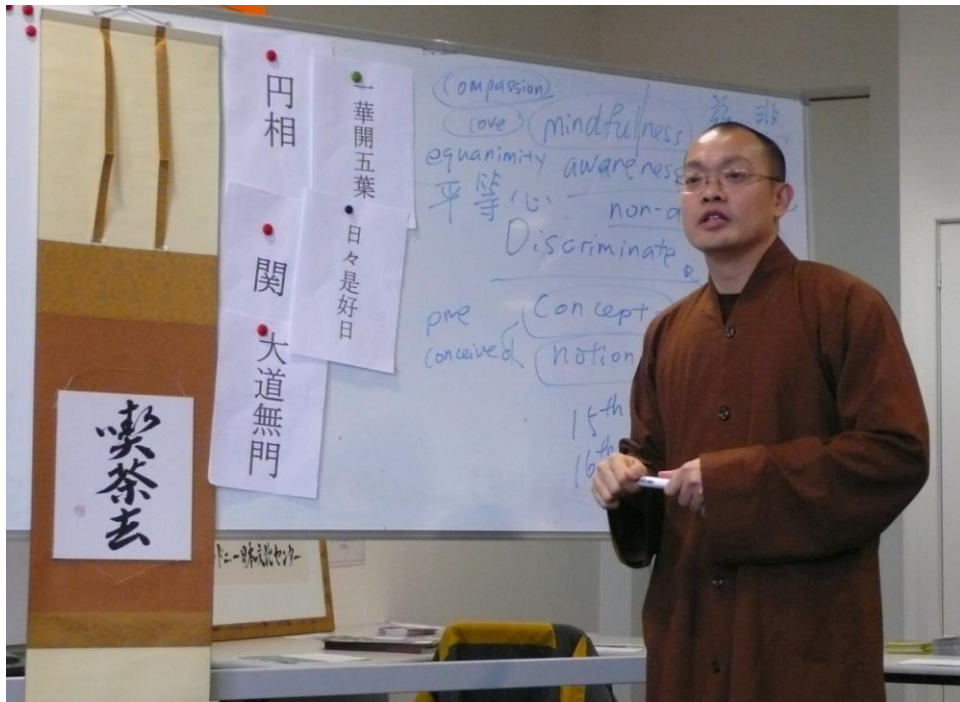 円相
一華開五葉
関
日々是好日
大道無門
喫茶去
compassion
love
mindfulness
equanimity awareness
平等心
non-
Discriminate
pre
conceived
concept
notion
15th
16th
ドニー日本文化センター